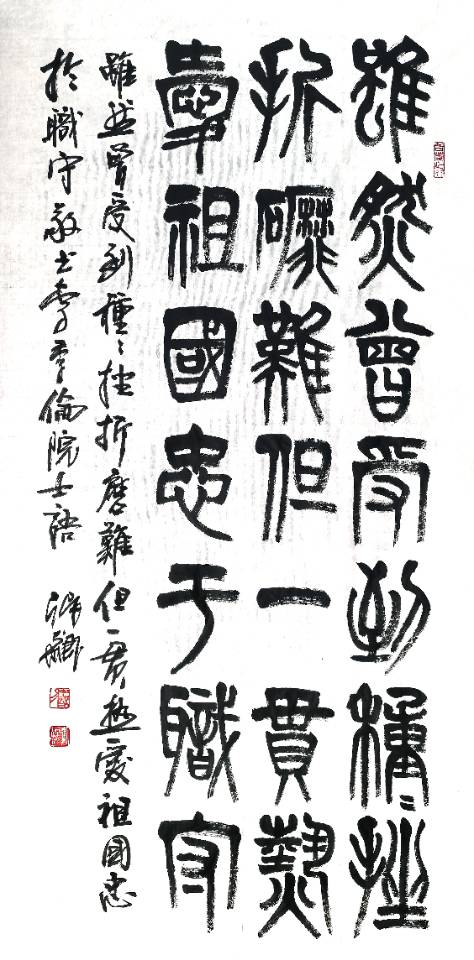 雖然曾受到種〻挫
折磨難但一貫熱
愛祖國忠于職守
雖然曾受到種〻挫折磨難但一貫熱愛祖國忠
於職守敬书李季倫院士語